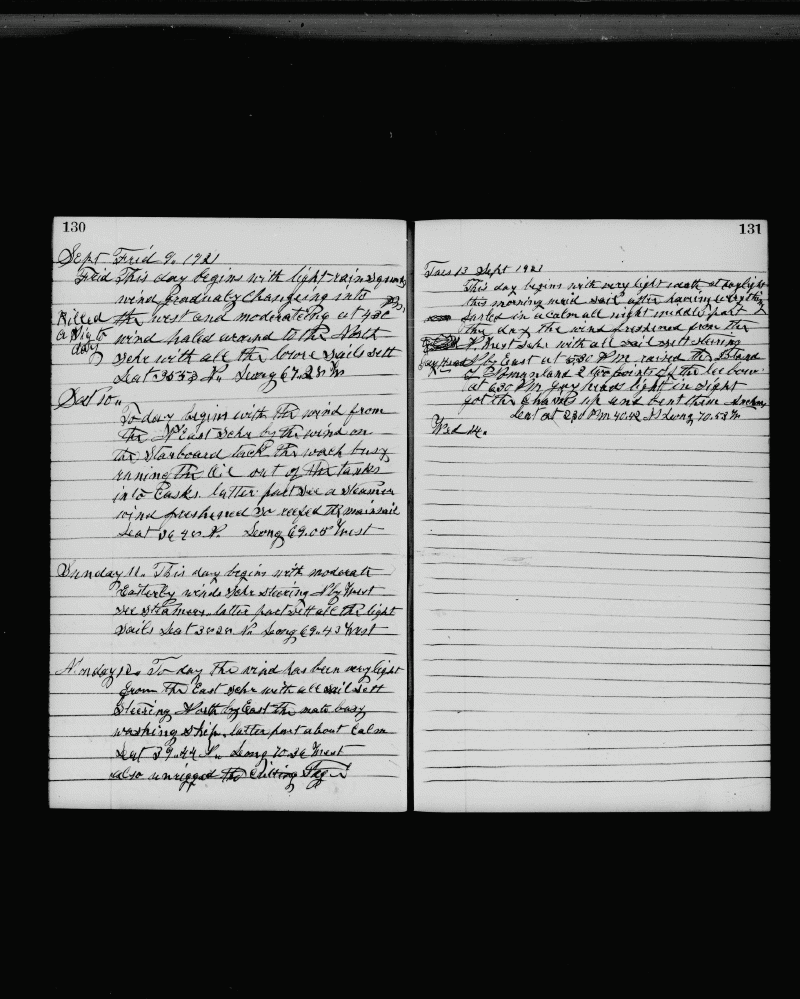 130
Sept Frid 9. 1921
Frid This day begins with light rain squalls
wind gradualy changeing into
Killed the west and moderateing at 4.30 P.M.
a Pig to wind haled around to the North
day schr with all the lower sails sett
Lat 35.53 N. Long 67.28 W
Sat 10..
To day begins with the wind from
the N East schr by the wind on
the starboard tack the wach busy
runing the Oil out of the tanks
into Casks. latter part see a steamer
wind freshened so reefed the mainsail
Lat 36 40 N. Long 69.08 West
Sunday 11. This day begins with moderate
Easterly winds schr steering N by West
see steamers. latter part sett all the light
sails Lat 38 20 N. Long 69.43 West
Monday 12. To day the wind has been very light
from the East schr with all sail sett
Steering North by East the mate busy
washing ship. latter part about calm
Lat 39.44 N. Long 70.36 West
also unrigged the Cutting
131
Tues 13 Sept 1921
This day begins with very light at daylight
this morning maid sail after having everything
furled in a calm all night middle part of
the day the wind freshened from the
S. West schr with all sail sett steering
Gay Head N by East at 5.30 P.M. raised the Island
of Nomansland 2 points of the lee bow
at 6.30 P.M. Gay heads light in sight
got the chains up and bent them anchors
Lat at 2.30 P.M. 40.42 N Long 70.53 W
Wed 14.